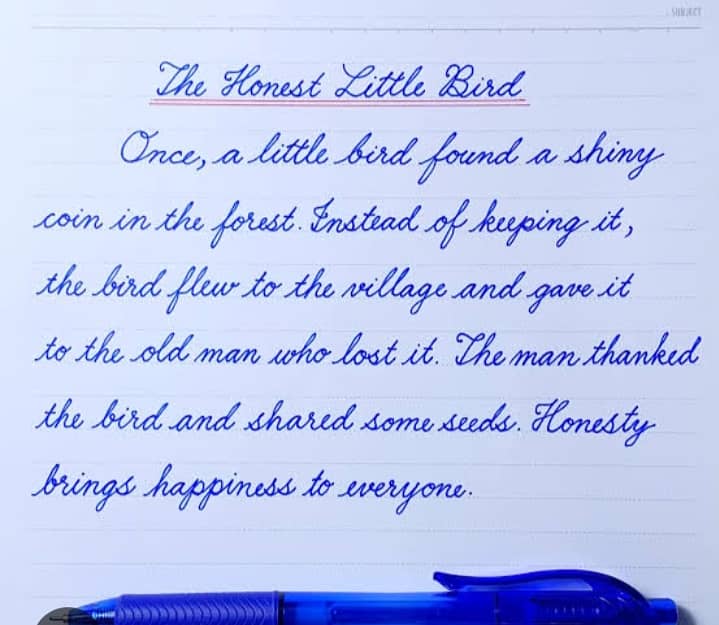 SUBJECT
The Honest Little Bird
Once, a little bird found a shiny
coin in the forest. Instead of keeping it,
the bird flew to the village and gave it
to the old man who lost it. The man thanked
the bird and shared some seeds. Honesty
brings happiness to everyone.